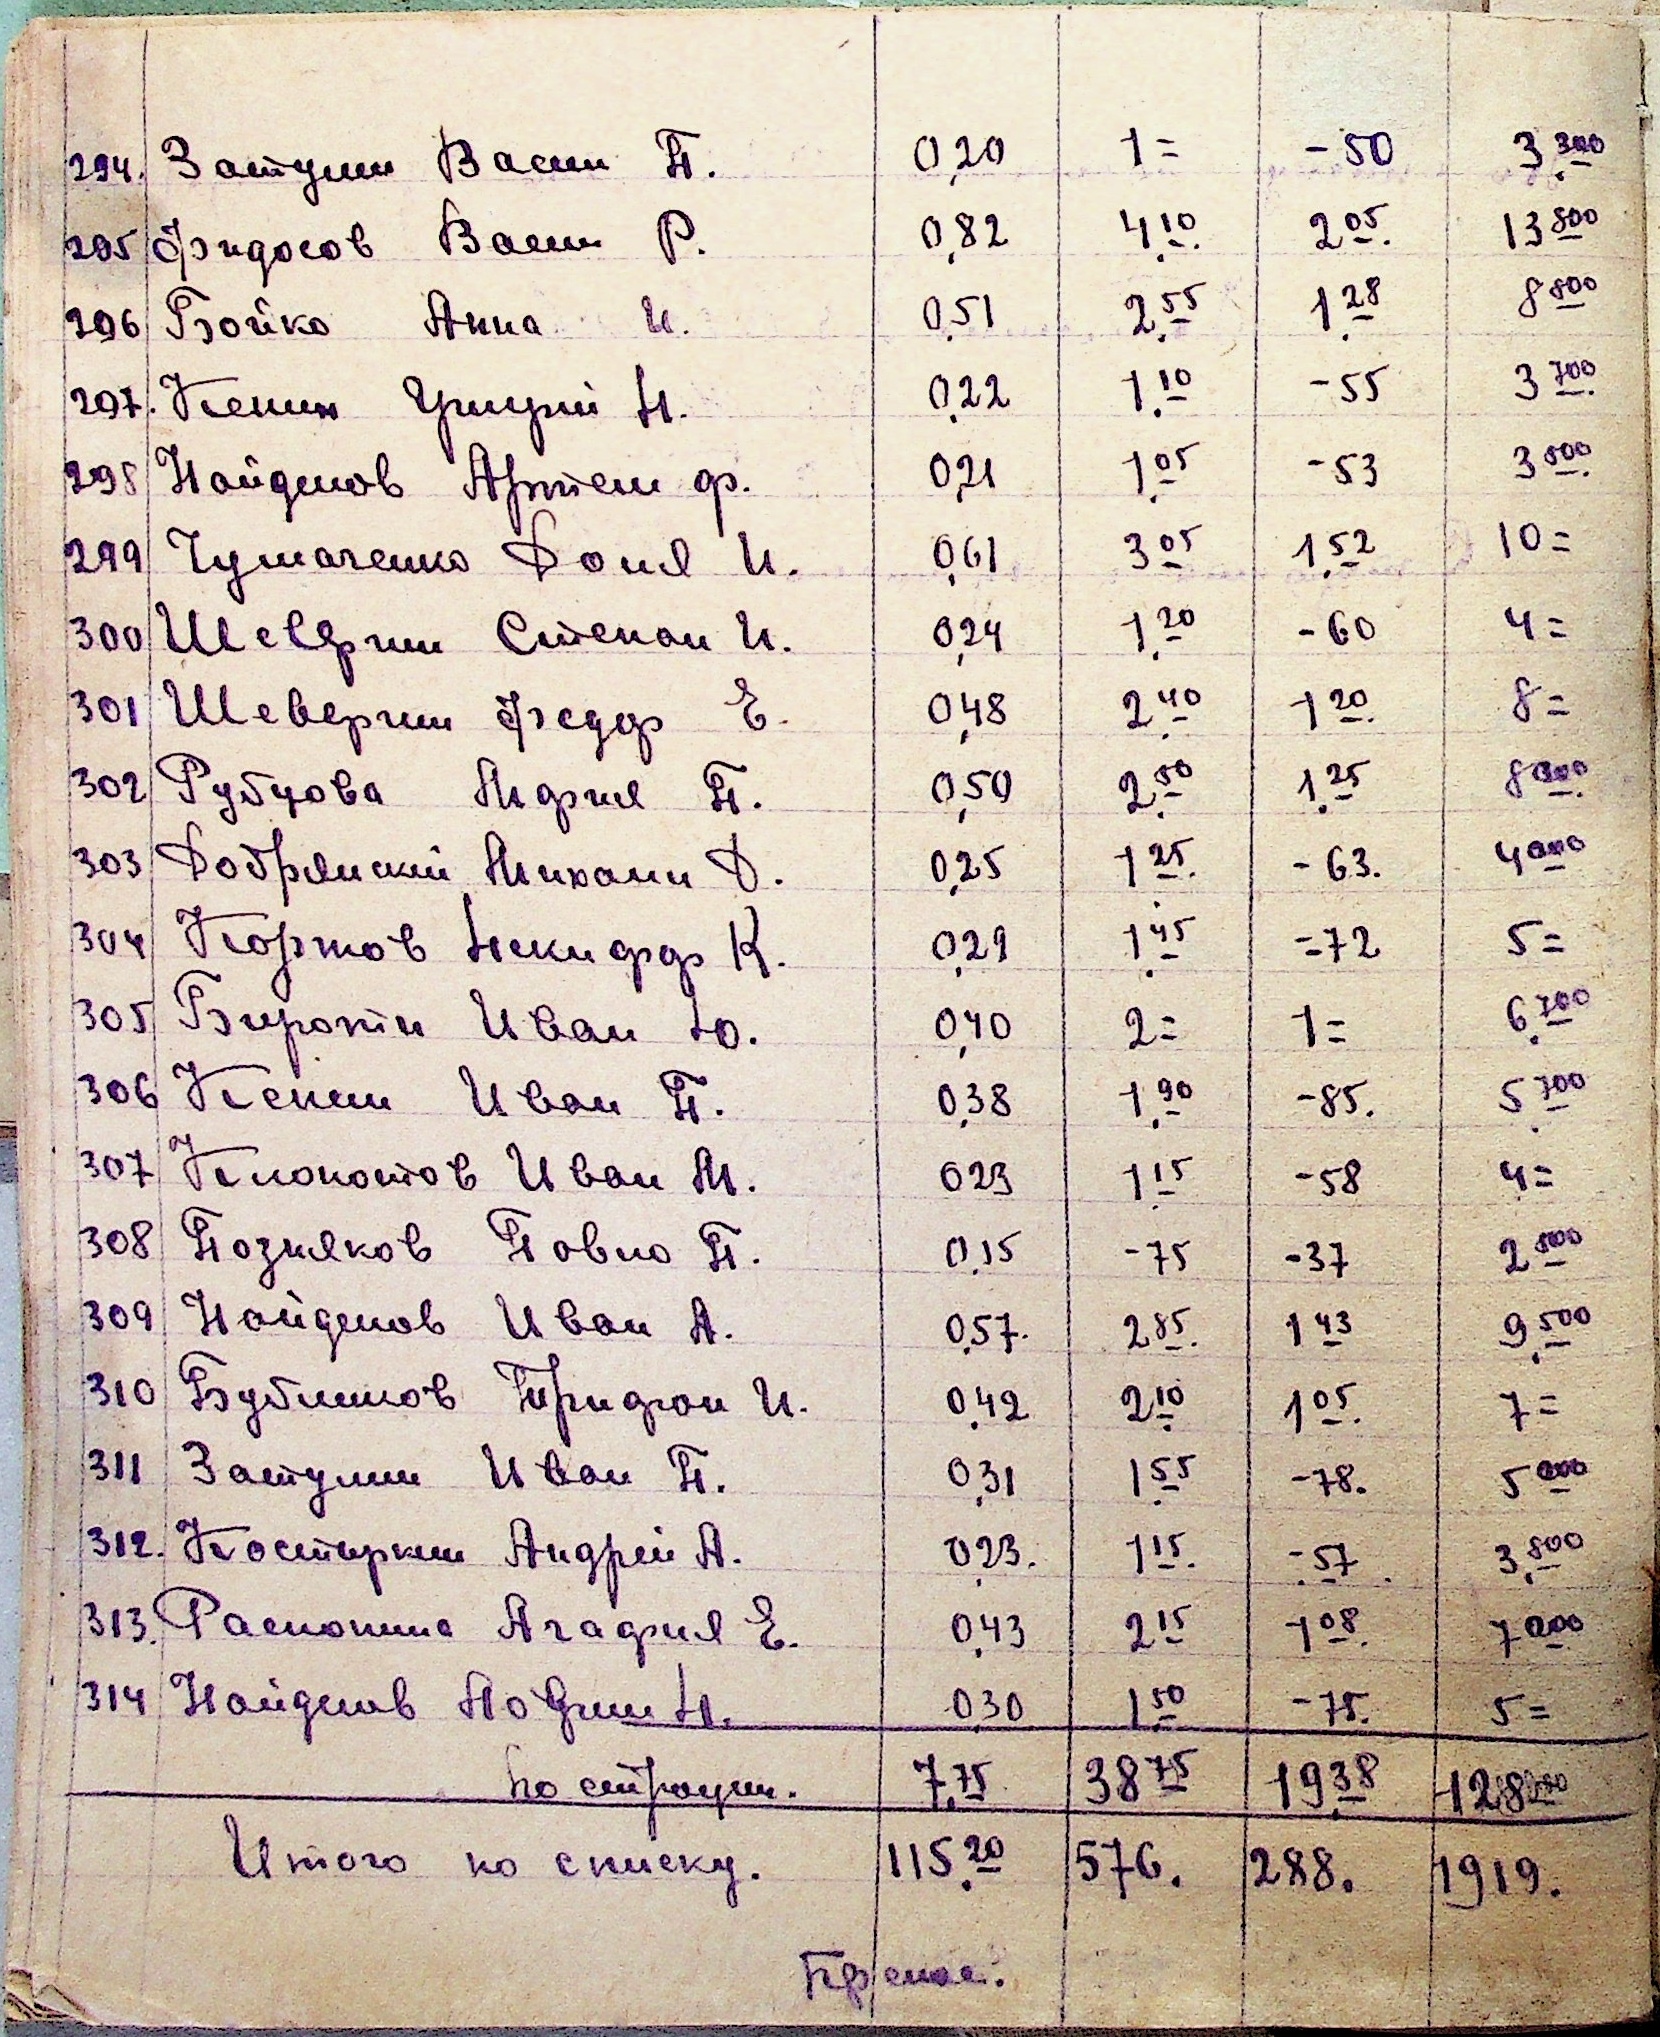 294. Затулин Васили П. 0,20 1= -50 3 300
295 Фидосов Васили Р. 0,82 4 10. 2 05. 13 800
296 Бойко Анна И. 0,51 2 55 1 28 8 800
297. Кенин Григорий Н. 0,22 1 10 -55 3 700
298 Найденов Артем Ф. 0,21 1 05 -53 3 500.
299 Чумаченко Доня И. 0,61 3 05 1 52 10=
300 Шеверин Степан И. 0,24 1 20 -60 4=
301 Шеверин Федор Е. 0,48 2 40 1 20. 8=
302 Рубцова П. 0,50 2 50 1 25 8 000.
303 Добрянский Михаил Д. 0,25 1 25. -63. 4 000
304 Коржов Некифор К. 0,29 1 45 -72 5=
305 Иван Ю. 0,40 2= 1= 6 700
306 Кенин Иван П. 0,38 1 90 -85. 5 700
307 Клокотов Иван М. 0,23 1 15 -58 4=
308 Позняков Павло П. 0,15 -75 -37 2 500
309 Найденов Иван А. 0,57. 2 85. 1 43 9 500
310 Бубликов Трифон И. 0,42 2 10 1 05. 7=
311 Затулин Иван П. 0,31 1 55 -78. 5 000
312. Костыркин Андрей А. 0,23. 1 15. -57. 3 800
313. Распопина Агафия Е. 0,43 2 15 1 08. 7 200
314 Найденов Н. 0,30 1 50 -75. 5=
по страниц. 7,75 38 75 19 38 128
Итого по списку. 115 20 576. 288. 1919.